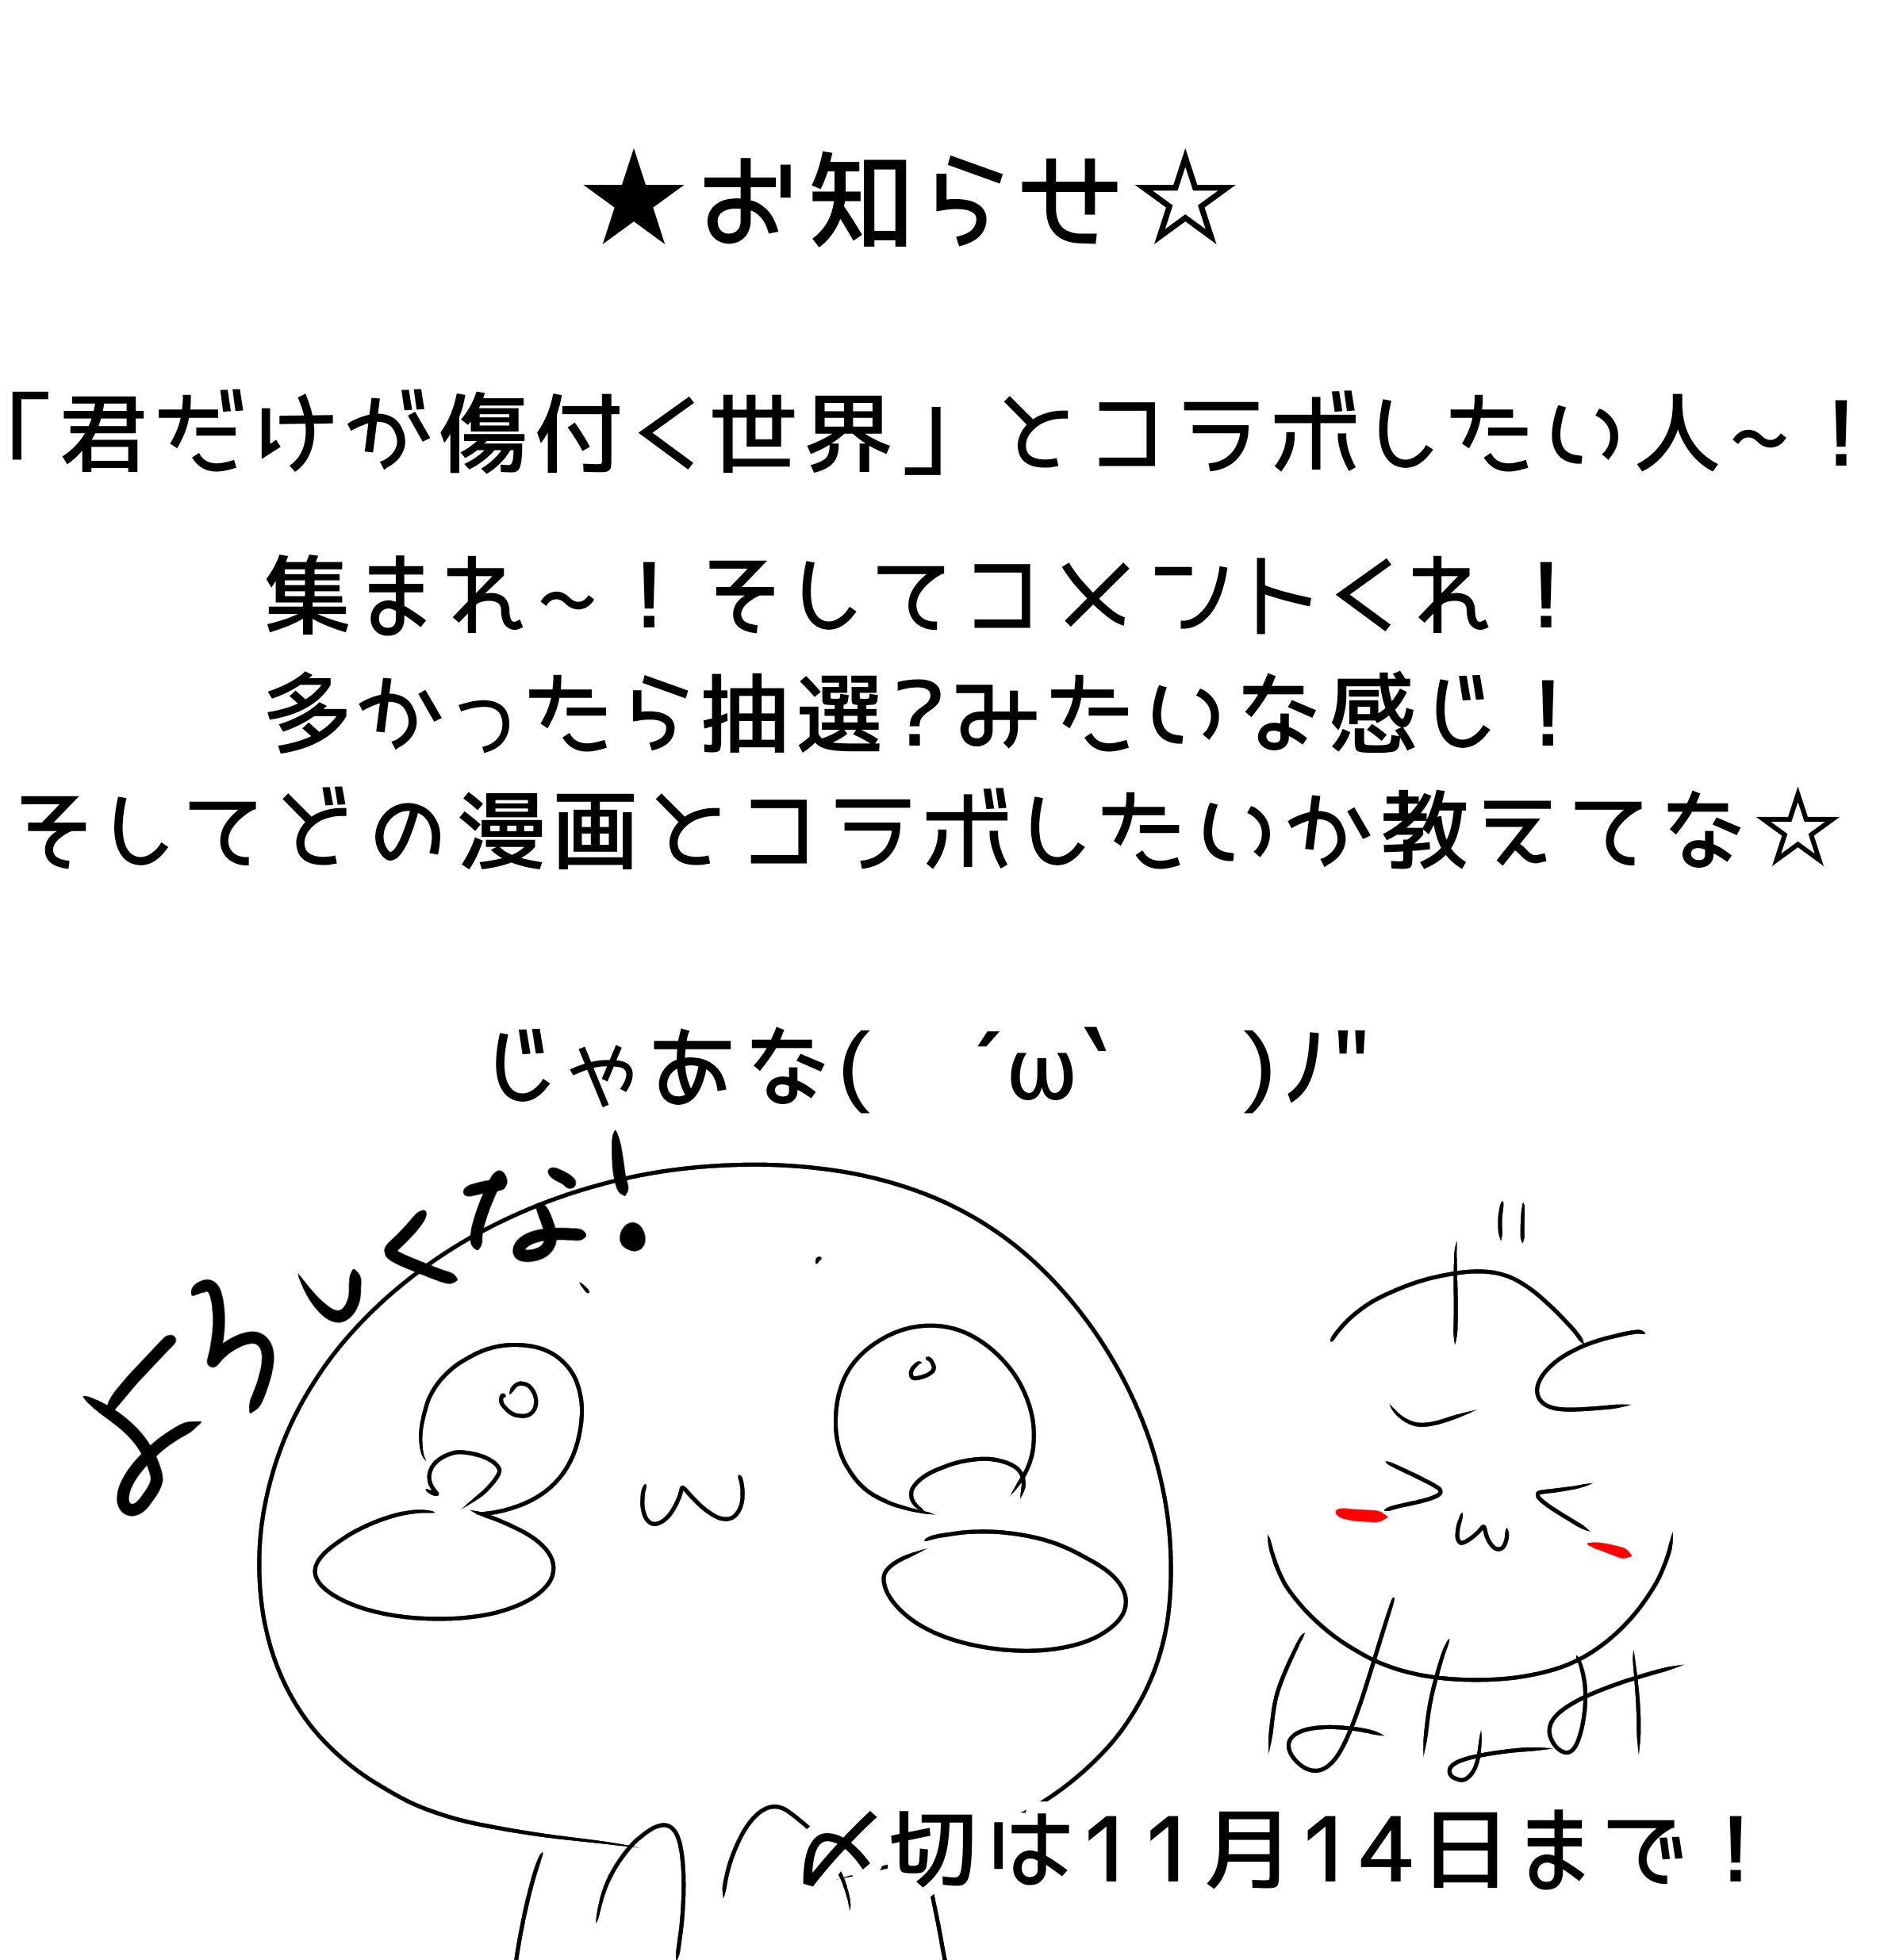 ★お知らせ☆
「君だけが傷付く世界」とコラボしたい人～！
集まれ～！そしてコメントくれ！
多かったら抽選?みたいな感じ！
そしてどの漫画とコラボしたいか教えてな☆
じゃあな( ´ω` )ﾉ"
よろしくな!
〆切は11月14日まで！